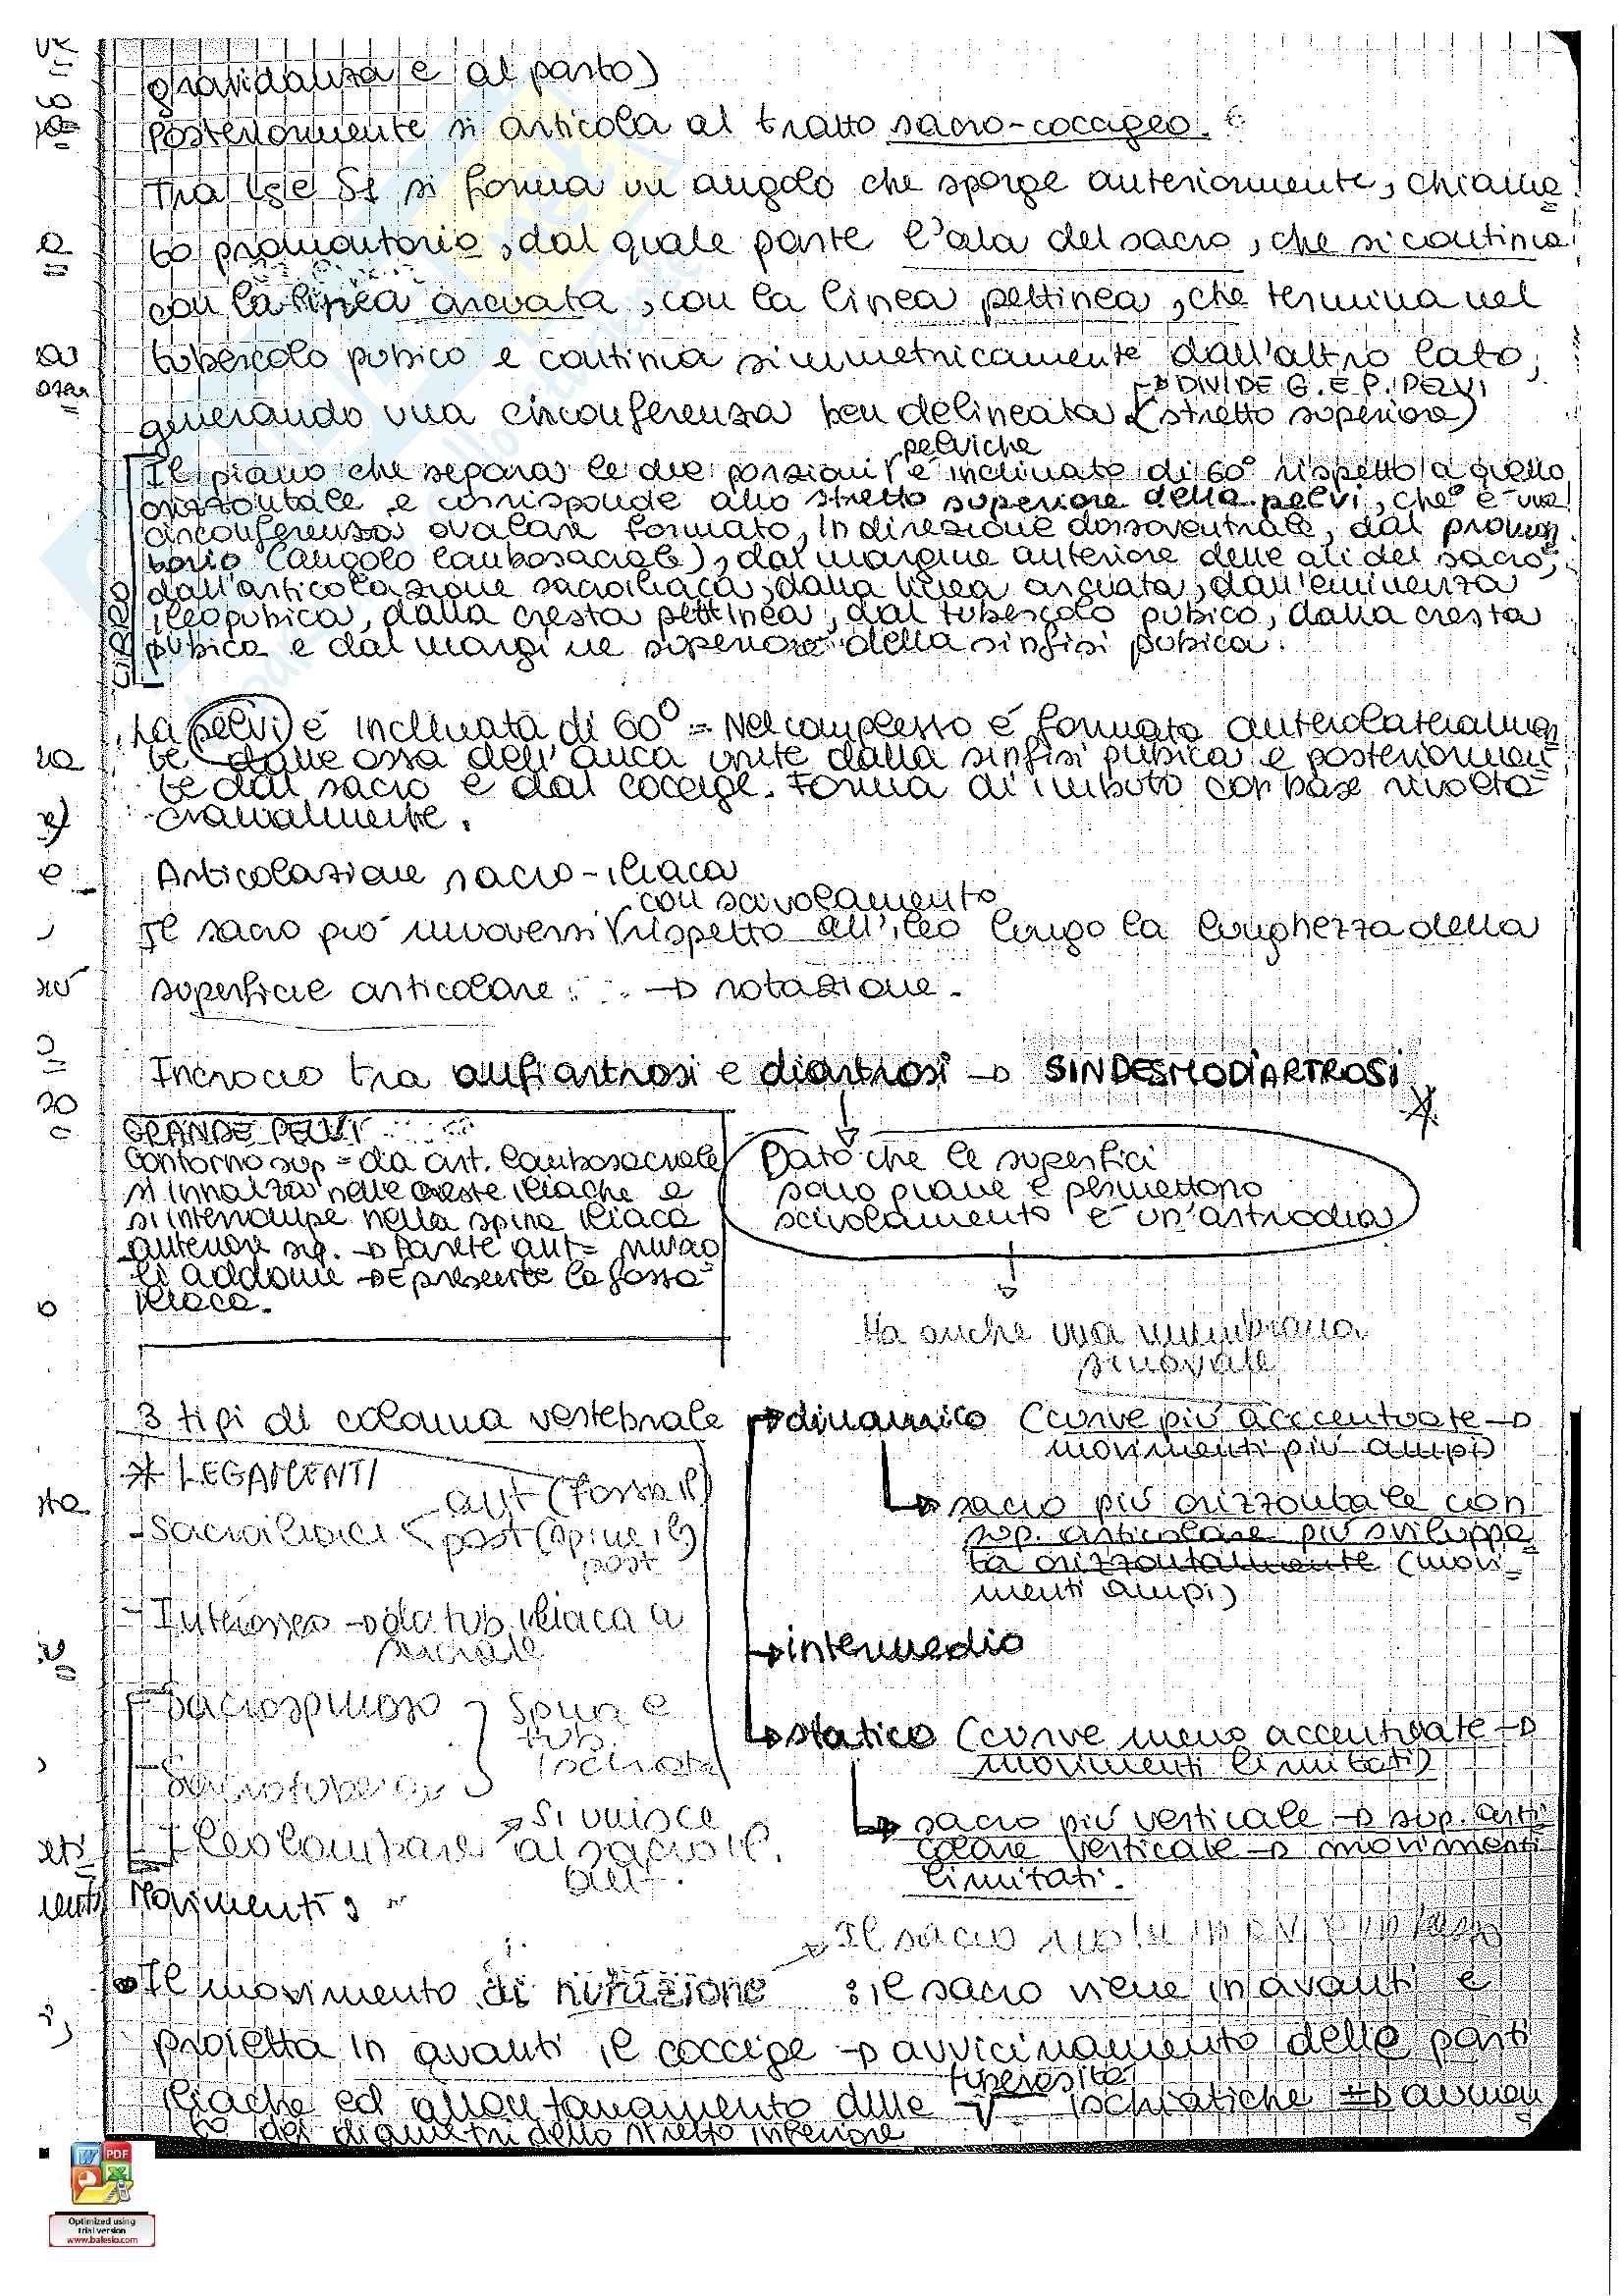 gravidanza e al parto)
Posteriormente si articola al tratto sacro-coccigeo.
Tra L5 e S1 si forma un angolo che sporge anteriormente, chiama=
to promontorio, dal quale parte l'ala del sacro, che si continua
con la linea arcuata, con la linea pettinea, che termina nel
tubercolo pubico e continua simmetricamente dall'altro lato,
→ DIVIDE G. E P. PELVI
generando una circonferenza ben delineata (stretto superiore)
pelviche
Il piano che separa le due porzioni è inclinato di 60° rispetto a quello
orizzontale e corrisponde allo stretto superiore della pelvi, che è una
circonferenza ovalare formata, in direzione dorsoventrale, dal promon
torio (angolo lombosacrale), dal margine anteriore delle ali del sacro,
dall'articolazione sacroiliaca, dalla linea arcuata, dall'eminenza
ileopubica, dalla cresta pettinea, dal tubercolo pubico, dalla cresta
pubica e dal margine superiore della sinfisi pubica.
La pelvi è inclinata di 60° = Nel complesso è formata anterolateralmen
te dalle ossa dell'anca unite dalla sinfisi pubica e posteriormen
te dal sacro e dal coccige. Forma di imbuto con base rivolta
cranialmente.
Articolazione sacro-iliaca
con scivolamento
Il sacro può muoversi rispetto all'ileo lungo la lunghezza della
superficie articolare → rotazione.
Incrocio tra anfiartrosi e diartrosi → SINDESMODIARTROSI
GRANDE PELVI
Contorno sup = da art. lombosacrale
si innalza nelle creste iliache e
si interrompe nella spina iliaca
anteriore sup. → Parete ant = muro
li addome → È presente la fossa
iliaca.
Dato che le superfici
sono piane e permettono
scivolamento è un'artrodia
Ha anche una membrana
sinoviale
3 tipi di colonna vertebrale → dinamico (curve più acccentuate →
movimenti più ampi)
→ sacro più orizzontale con
sup. articolare più sviluppa
ta orizzontalmente (movi=
menti ampi)
→ intermedio
→ statico (curve meno accentuate →
movimenti limitati)
→ sacro più verticale → sup. arti
colare verticale → movimenti
limitati.
* LEGAMENTI
- Sacroiliaci < ant (fossa il)
post (spine il)
post
- Interosseo → da tub. iliaca a
sacrale
- Sacrospinoso } spina e
tub.
ischiat
- Sacrotuberos
- Ileolombare → si unisce
al sacroil.
ant.
Movimenti:
→ Il sacro
• Il movimento di nutazione : il sacro viene in avanti e
proietta in avanti il coccige → avvicinamento delle parti
tuberosità
iliache ed allontanamento delle √ ischiatiche → aumen
to dei diametri dello stretto inferiore
Optimized using
trial version
www.balesio.com